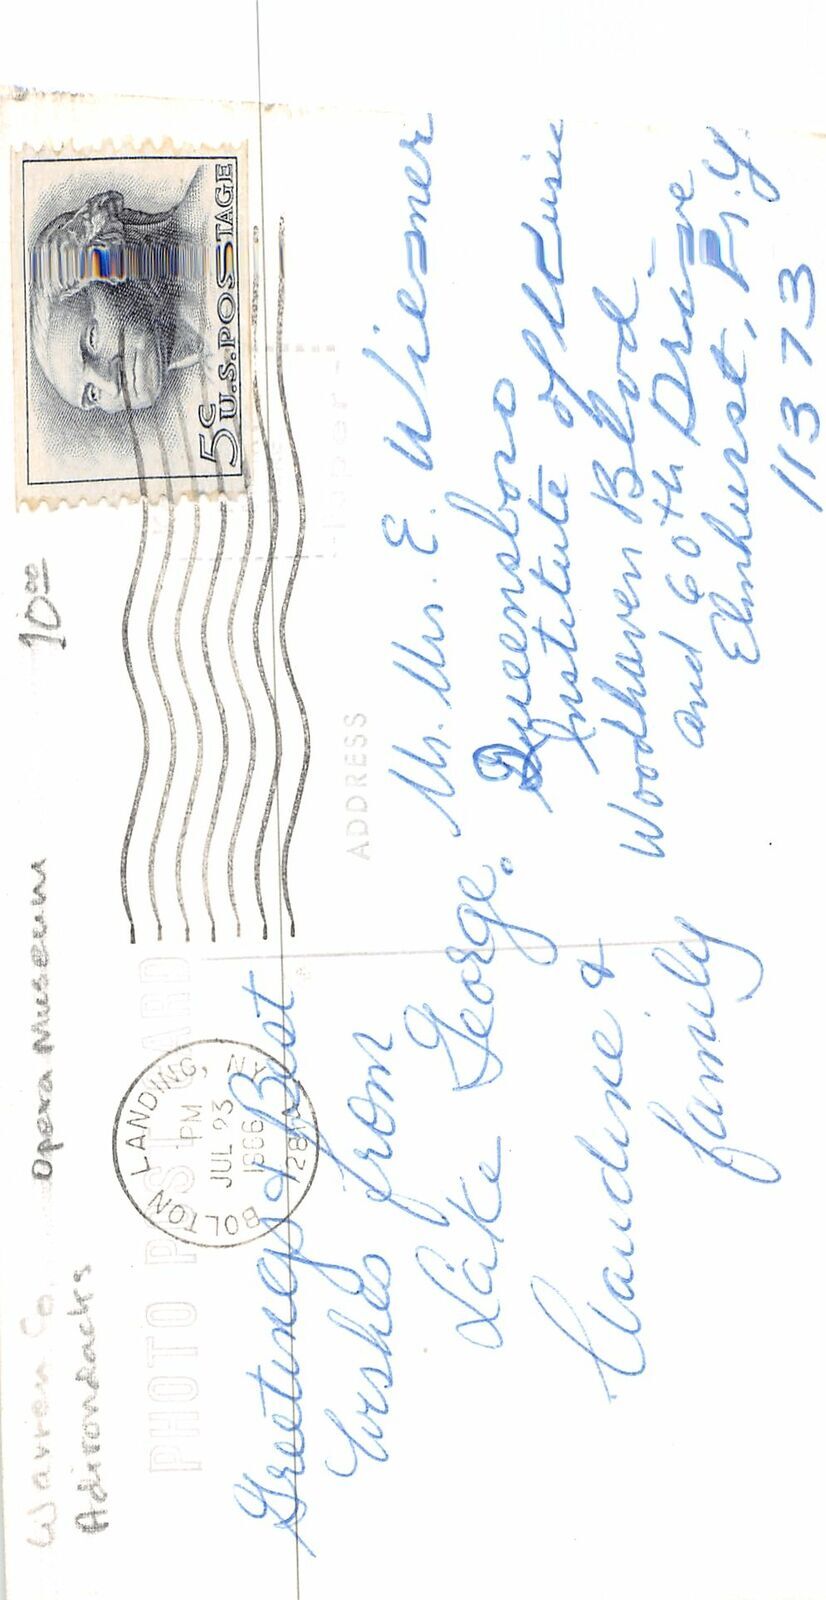 Warren Co. Opera Museum 10.00
Adirondacks
5¢
U.S. POSTAGE
PHOTO POST CARD
BOLTON LANDING, NY
PM
JUL 23
1966
ADDRESS
Greetings & Best
Wishes from
Lake George.
Claudine &
family
Mr. Mrs. E. Wiesner
Queensboro
Institute of Music
Woodhaven Blvd.
and 60th Drive
Elmhurst, N.Y.
11373